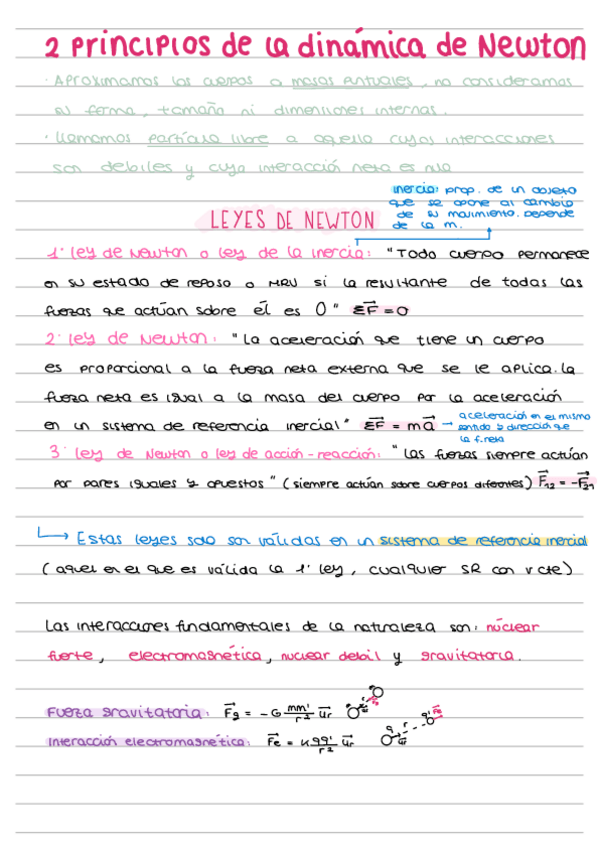 2 principios de la dinámica de Newton
· Aproximamos los cuerpos a masas puntuales, no consideramos
su forma, tamaño ni dimensiones internas.
· Llamamos partícula libre a aquello cuyas interacciones
son debiles y cuya interacción neta es nula
inercia: prop. de un objeto
que se opone al cambio
de su movimiento. Depende
de la m.
LEYES DE NEWTON
1ª ley de Newton o ley de la inercia: "Todo cuerpo permanece
en su estado de reposo o MRU si la resultante de todas las
fuerzas que actúan sobre él es 0" ΣF⃗ = 0
2ª ley de Newton: "La aceleración que tiene un cuerpo
es proporcional a la fuerza neta externa que se le aplica. La
fuerza neta es igual a la masa del cuerpo por la aceleración
en un sistema de referencia inercial" ΣF⃗ = ma⃗ → aceleración en el mismo
sentido y dirección que
la f. neta
3ª ley de Newton o ley de acción-reacción: "Las fuerzas siempre actúan
por pares iguales y opuestos" (siempre actúan sobre cuerpos diferentes) F⃗12 = -F⃗21
↳ Estas leyes solo son válidas en un sistema de referencia inercial
(aquel en el que es válida la 1ª ley, cualquier SR con v cte)
Las interacciones fundamentales de la naturaleza son: núclear
fuerte, electromagnética, nuclear débil y gravitatoria.
Fuerza gravitatoria: F⃗g = -G mm'/r² u⃗r
Interacción electromagnética: F⃗e = K qq'/r² u⃗r